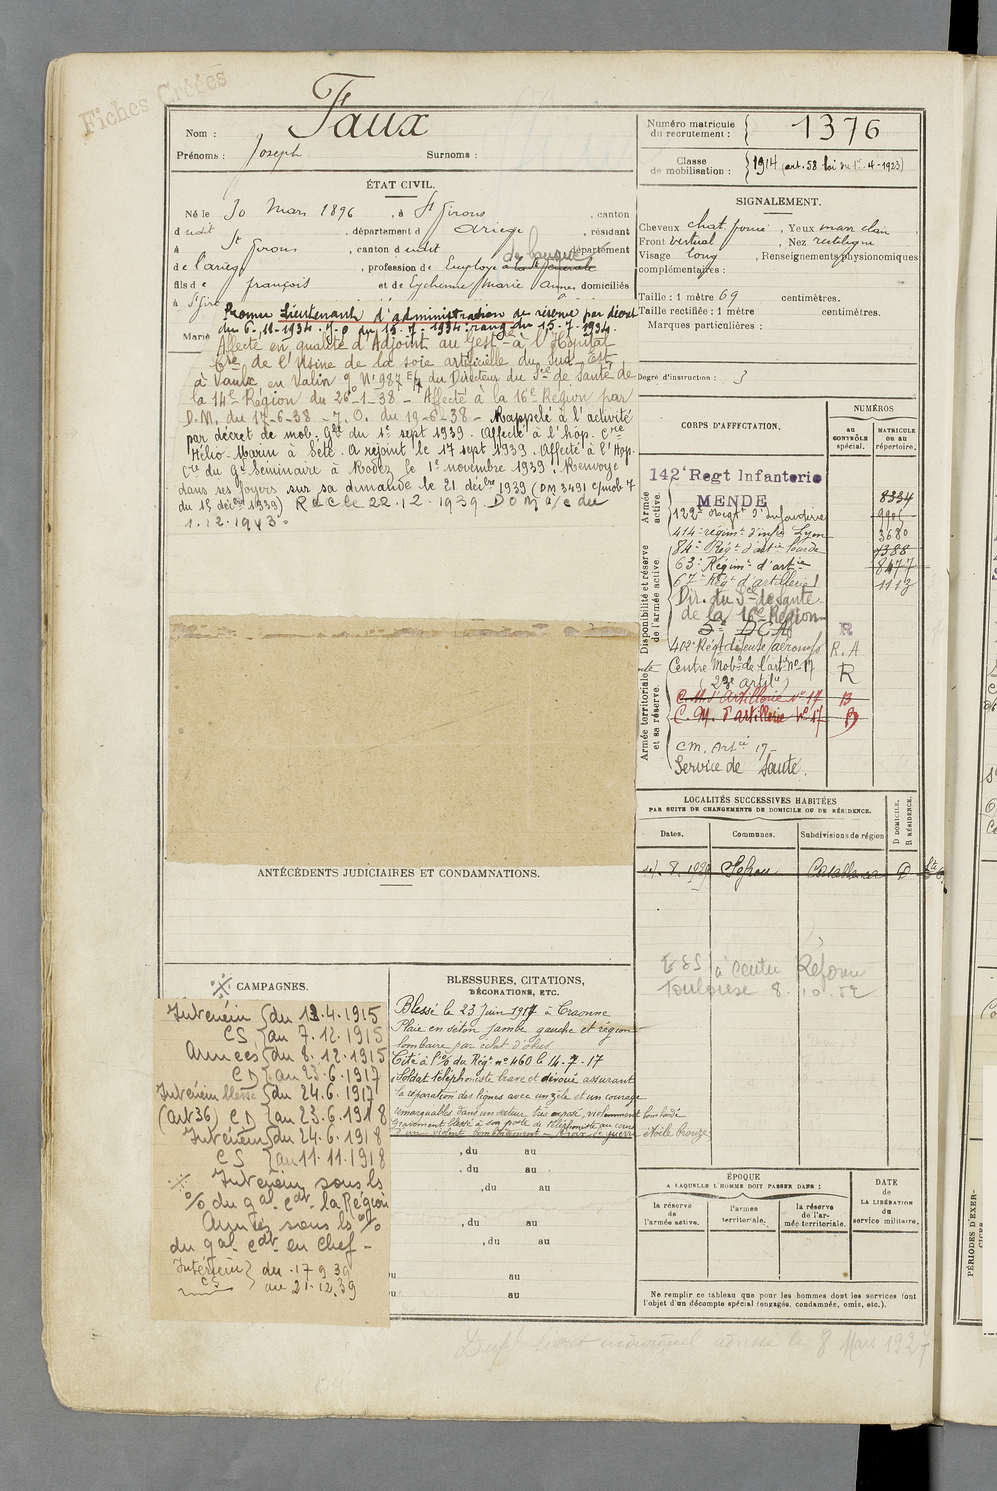 Fiches Créées
Nom : Faux
Prénoms : Joseph Surnoms :
Numéro matricule du recrutement : 1376
Classe de mobilisation : 1914 (art. 58 loi du 1er-4-1923)
ÉTAT CIVIL.
Né le 30 Mars 1896, à St Girons, canton
dudit, département d Ariège, résidant
à St Girons, canton dudit, département
de l'ariège, profession de Employé de banque
fils de françois et de Eychenne Marie Anne, domiciliés
à
Marié
Promu Lieutenant d'administration de réserve par décret
du 6-11-1934. J.O du 15.7.1934. rang du 15-7-1934.
Affecté en qualité d'Adjoint au Gest. à l'Hôpital
Cre de l'Usine de la soie artificielle du Sud-Est
à Vaulx en Valin N° 987 du Directeur du Sce de Santé de
la 14e Région du 26-1-38 - Affecté à la 16e Région par
D.M. du 17-6-38 - J.O. du 19-6-38 - Rappelé à l'activité
par décret de mob. Gle du 1er sept 1939. Affecté à l'hop. Cre
Hélio-Marin à Sète. A rejoint le 17 sept 1939. Affecté à l'Hop.
Cre du Gd Séminaire à Rodez le 1er novembre 1939. Renvoyé
dans ses foyers sur sa demande le 21 décbre 1939 (DM 3491 c/mob 7
du 15 décbre 1939) R d C le 22.12.1939. DOM a/c du
1.12.1943
SIGNALEMENT.
Cheveux chat. foncé, Yeux marr clair
Front vertical, Nez rectiligne
Visage long, Renseignements physionomiques
complémentaires :
Taille : 1 mètre 69 centimètres.
Taille rectifiée : 1 mètre centimètres.
Marques particulières :
Degré d'instruction : 3
CORPS D'AFFECTATION.
NUMÉROS
AU CONTRÔLE spécial.
MATRICULE OU AU répertoire.
Armée active.
Disponibilité et réserve de l'armée active.
Armée territoriale et sa réserve.
142e Regt Infanterie
MENDE 8334
122e Régt d'Infanterie
414e régimt d'infie Lyon 3680
84e Régt d'artie lourde 1388
63e Régimt d'artie 8477
67e Régt d'artillerie 1113
Dir. du Sce de Santé
de la 16e Région
DCA R
402e Régt défense aéronefs R.A
Centre Mobon de l'arte n° 17 R
C. M. d'Artillerie n° 17 B
C. M. d'artillerie n° 17 B
CM. Artie 17-
Service de Santé.
LOCALITÉS SUCCESSIVES HABITÉES
PAR SUITE DE CHANGEMENTS DE DOMICILE OU DE RÉSIDENCE.
Dates. Communes. Subdivisions de région
D DOMICILE. R RÉSIDENCE.
Sefrou Casablanca D
Réforme
Toulouse 8.10.52
ANTÉCÉDENTS JUDICIAIRES ET CONDAMNATIONS.
CAMPAGNES.
Intérieur du 12.4.1915
CS au 7.12.1915
Armées du 8.12.1915
CD au 23.6.1917
Intérieur blessé du 24.6.1917
(art 36) CD au 23.6.1918
Intérieur du 24.6.1918
CS au 11.11.1918
Intérieur sous ls
% du gal cdt la Région
Armées sous ls o/%
du gal cdt en chef -
Intérieur du 17 9 39
CS au 21.12.39
BLESSURES, CITATIONS,
DÉCORATIONS, ETC.
Blessé le 23 Juin 1917 à Craonne
Plaie en séton jambe gauche et région
lombaire par éclat d'obus
Cité à l'o/ du Régt n° 460 le 14-7-17
Soldat téléphoniste brave et dévoué assurant
la réparation des lignes avec un zèle et un courage
remarquables dans un secteur très exposé, violemment bombardé
Gravement blessé à son poste de téléphoniste au cours
d'un violent bombardement - Croix de guerre étoile bronze
, du au
, du au
, du au
, du au
, du au
du au
du au
ÉPOQUE
A LAQUELLE L'HOMME DOIT PASSER DANS :
la réserve de l'armée active.
l'armée territoriale.
la réserve de l'armée territoriale.
DATE DE LA LIBÉRATION du service militaire.
Ne remplir ce tableau que pour les hommes dont les services font
l'objet d'un décompte spécial (engagés, condamnés, omis, etc.).
livret individuel adressé le 8 Mars 1927
PÉRIODES D'EXER-